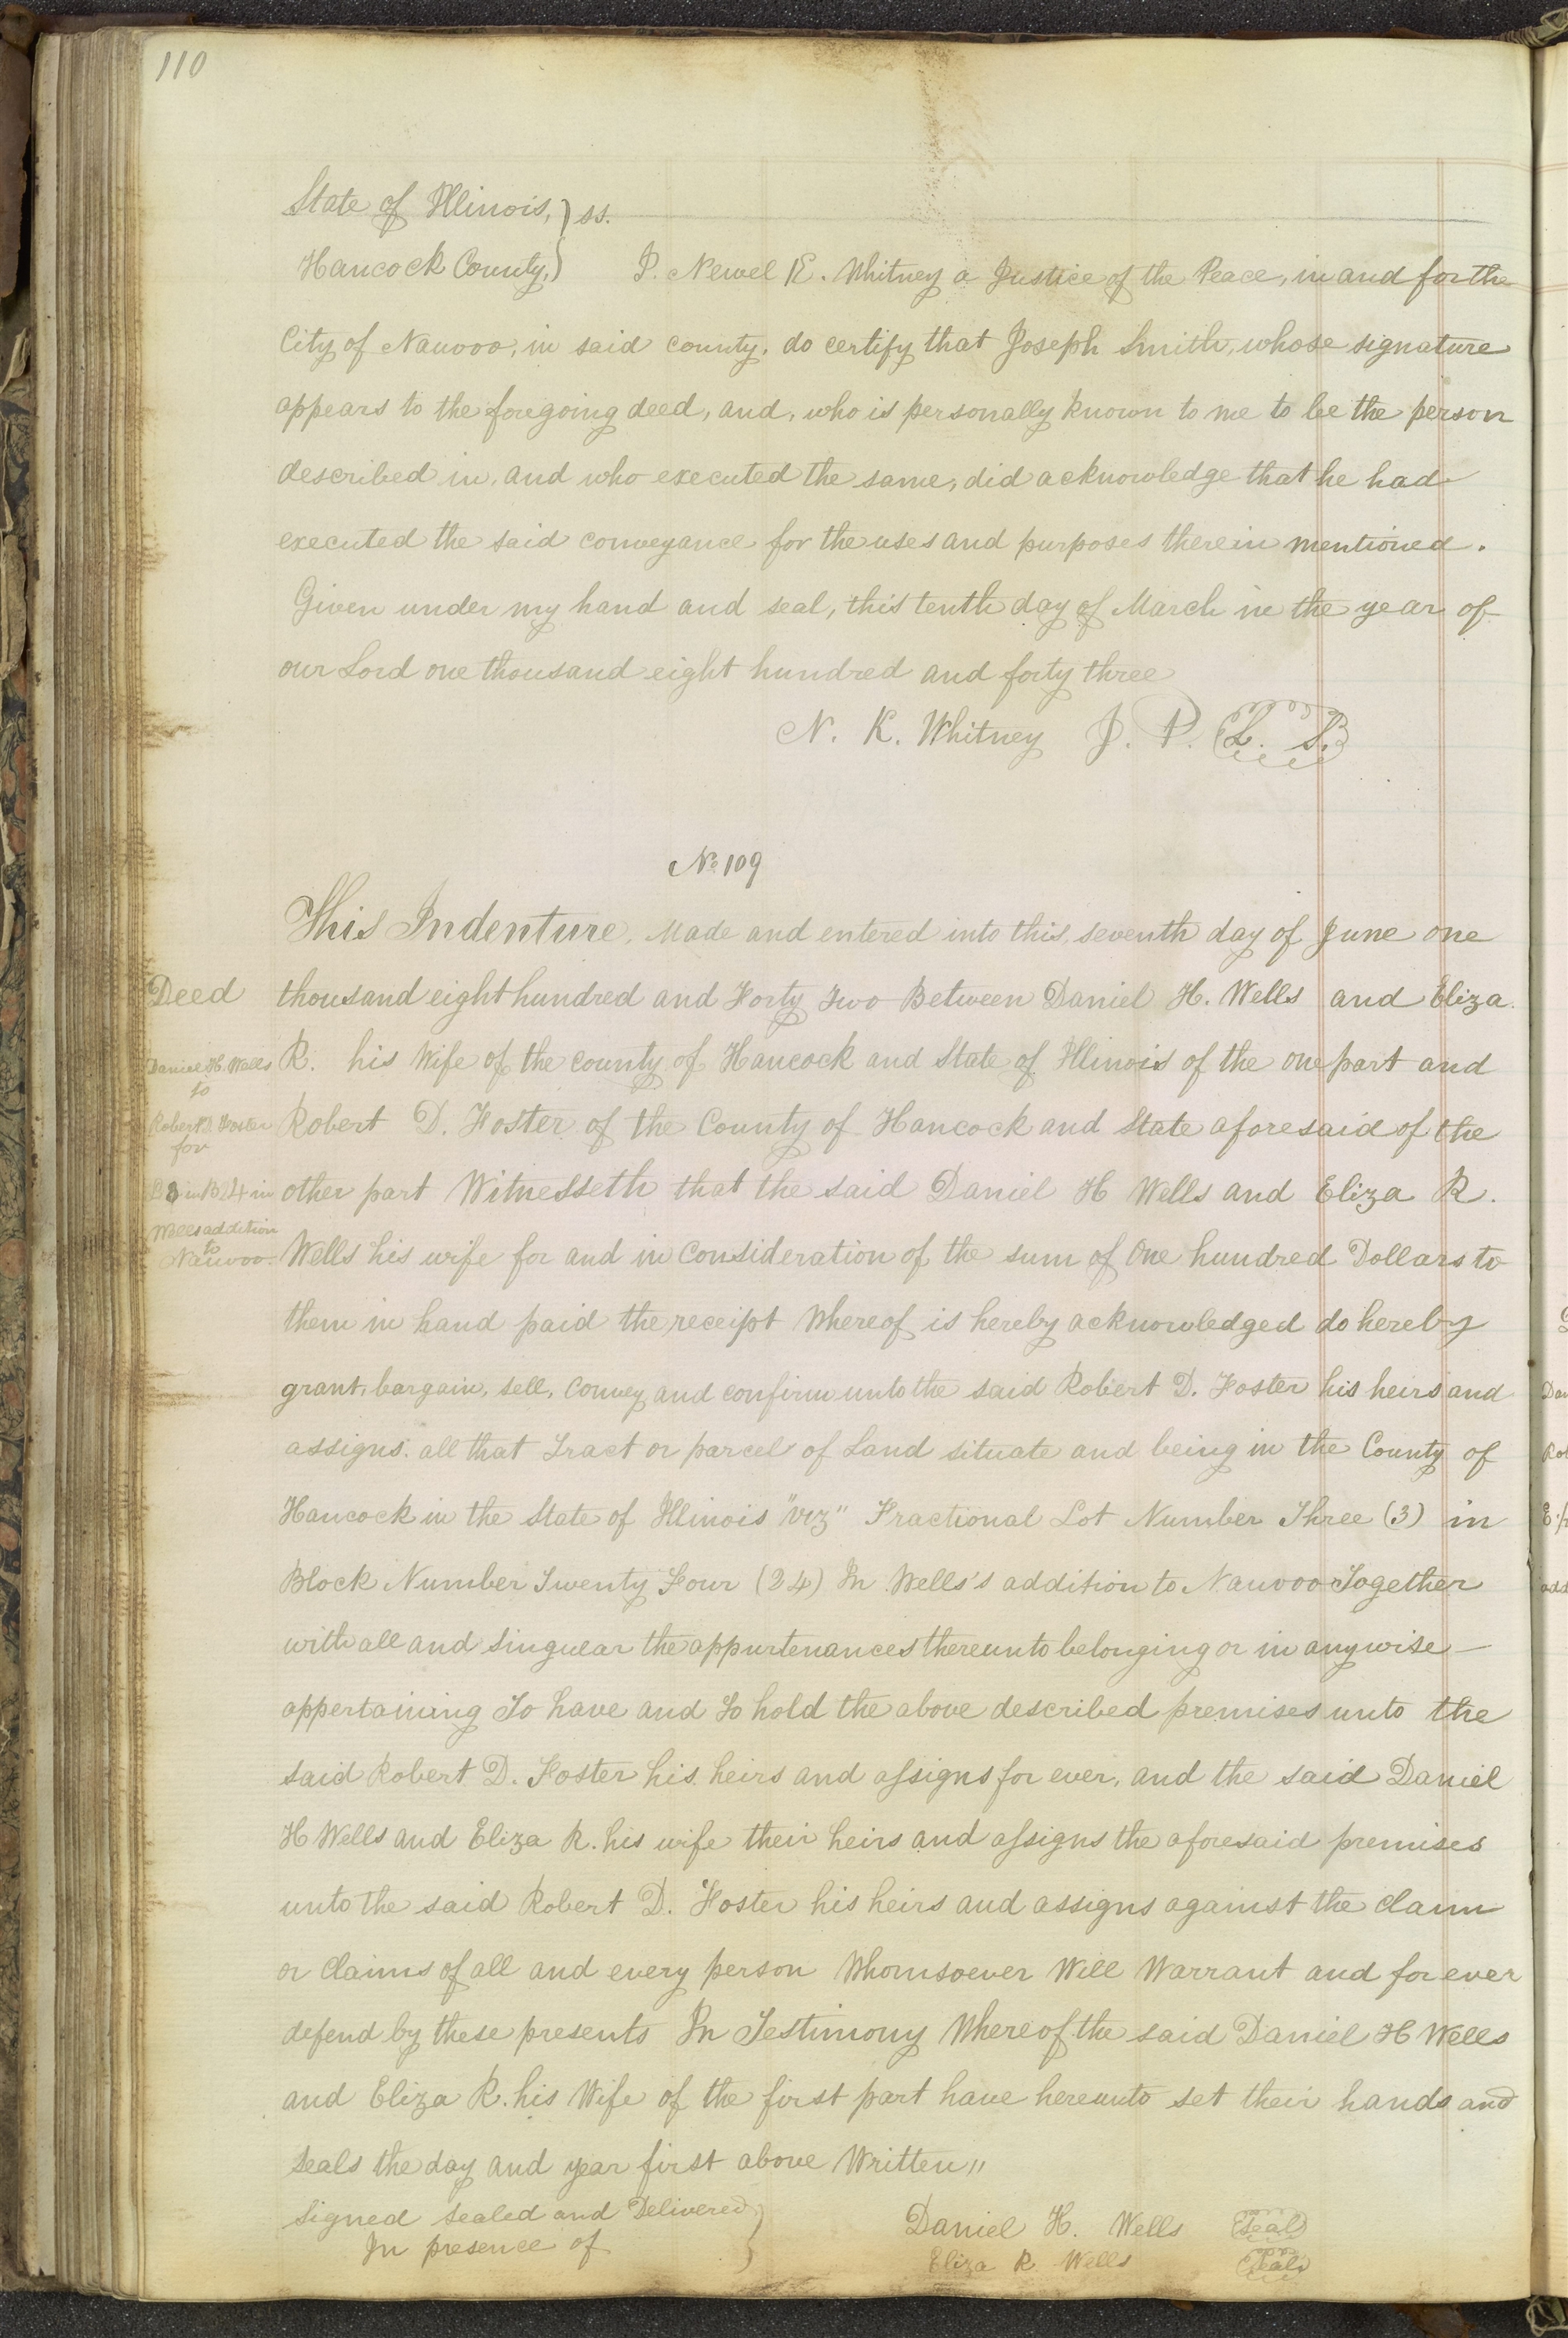 110
State of Illinois, } ss.
Hancock County, } I. Newel K. Whitney a Justice of the Peace, in and for the
City of Nauvoo, in said county, do certify that Joseph Smith, whose signature
appears to the foregoing deed, and, who is personally known to me to be the person
described in, and who executed the same, did acknowledge that he had
executed the said conveyance for the uses and purposes therein mentioned.
Given under my hand and seal, this tenth day of March in the year of
our Lord one thousand eight hundred and forty three
N. K. Whitney J. P. L. S.
No. 109
This Indenture, Made and entered into this, seventh day of June one
Deed
thousand eight hundred and Forty Two Between Daniel H. Wells and Eliza
Daniel H. Wells
to
R. his Wife of the county of Hancock and State of Illinois of the one part and
Robert D. Foster
for
Robert D. Foster of the County of Hancock and State aforesaid of the
3 in B 24 in
other part Witnesseth that the said Daniel H Wells and Eliza R.
Wells addition
to
Nauvoo
Wells his wife for and in Consideration of the sum of One hundred Dollars to
them in hand paid the receipt Whereof is hereby acknowledged do hereby
grant, bargain, sell, Convey and confirm unto the said Robert D. Foster his heirs and
assigns. all that Tract or parcel of Land situate and being in the County of
Hancock in the State of Illinois "viz" Fractional Lot Number Three (3) in
Block Number Twenty Four (24) In Wells's addition to Nauvoo Together
with all and Singular the appurtenances thereunto belonging or in anywise
appertaining To have and to hold the above described premises unto the
said Robert D. Foster his heirs and assigns for ever, and the said Daniel
H Wells and Eliza R. his wife their heirs and assigns the aforesaid premises
unto the said Robert D. Foster his heirs and assigns against the Claim
or Claims of all and every person Whomsoever Will Warrant and for ever
defend by these presents In Testimony Whereof the said Daniel H Wells
and Eliza R. his Wife of the first part have hereunto set their hands and
Seals the day and year first above Written"
Signed Sealed and Delivered }
In presence of }
Daniel H. Wells Seal
Eliza R Wells Seal